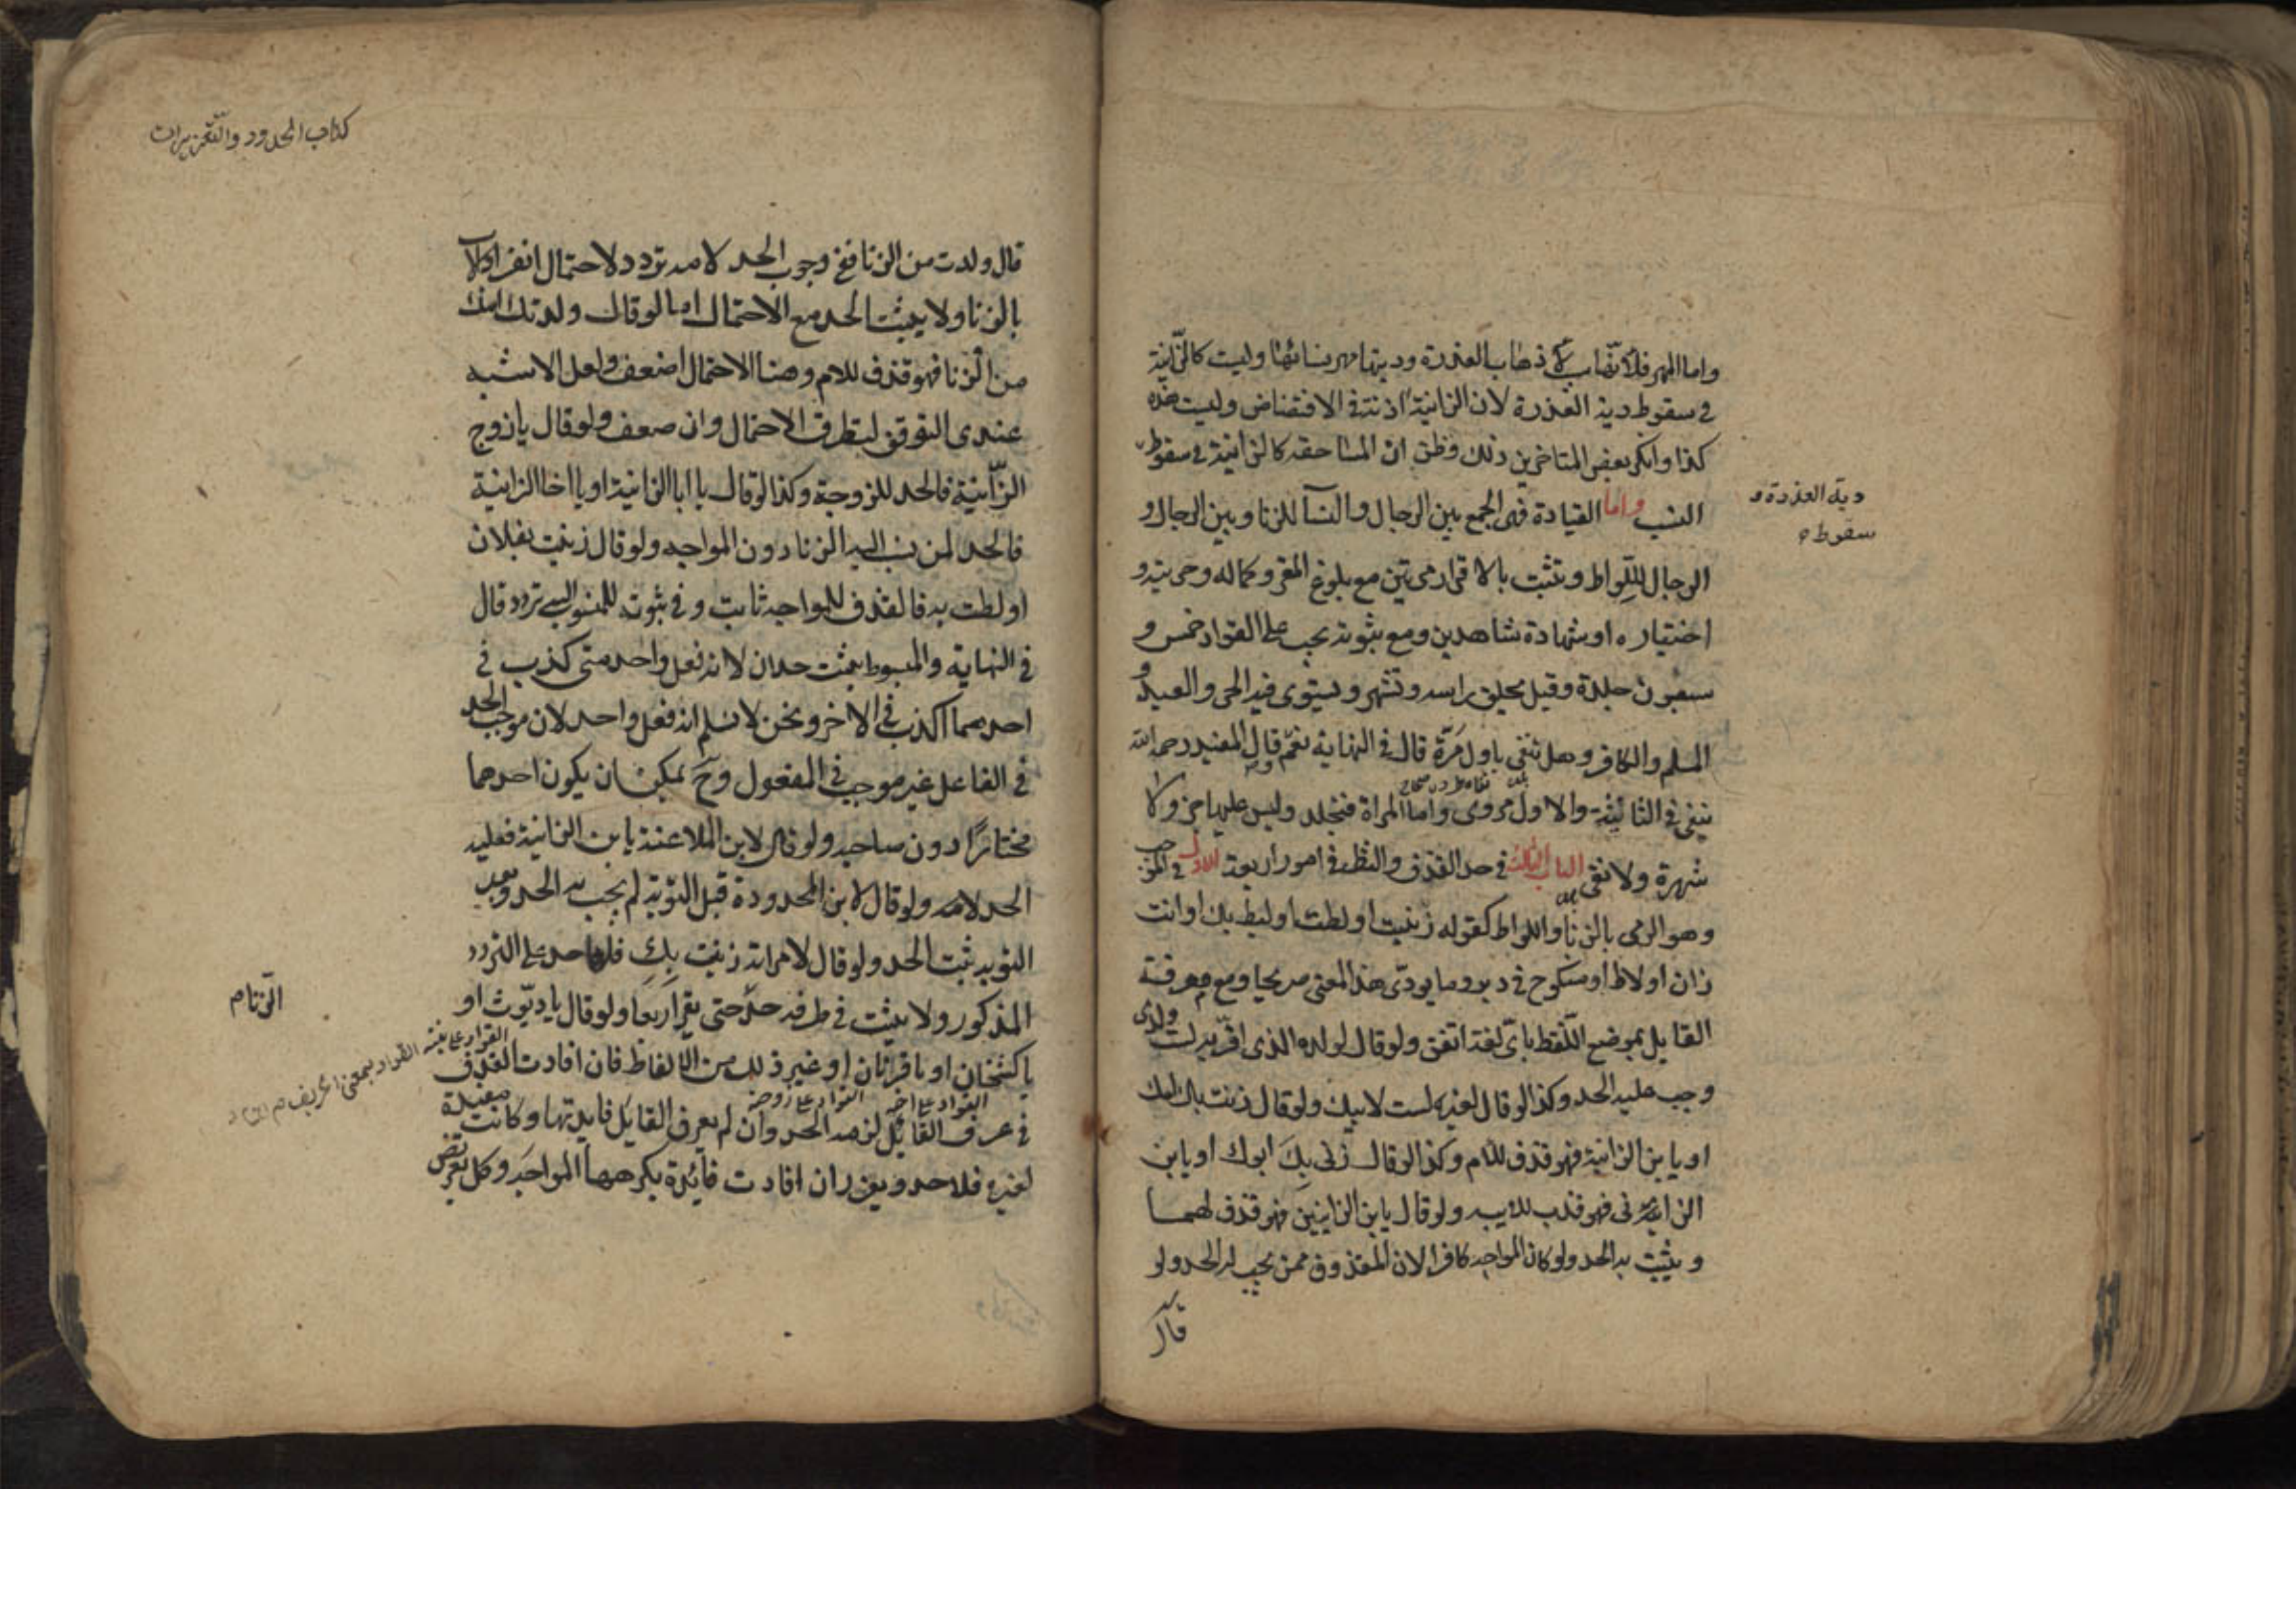 واما المهر فلانها سبب في ذهاب العذرة وديتها مهر نسائها وليست كالزانية
في سقوط دية العذرة لان الزانية اذنت في الافتضاض وليست هذه
كذا وانكر بعض المتاخرين ذلك وظن ان المساحقة كالزانية في سقوط
دية العذرة و
سقوط
النسب واما القيادة فهي الجمع بين الرجال والنسآ للزنا وبين الرجال و
الرجال للّواط وتثبت بالاقرار مرتين مع بلوغ المقر وكماله وحريته و
اختياره او شهادة شاهدين ومع ثبوته يجب على القواد خمس و
سبعون جلدة وقيل يحلق راسه وتشهر ويستوى فيه الحر والعبد و
المسلم والكافر وهل تنفى باول مَرّة قال في النهاية نعم وقال المفيد رحمه الله
ينفى في الثانية والاول مروى واما المراة فتجلد وليس عليها جز ولا
شهرة ولا نفى الباب الثالث في حد القذف والنظر في امور اربعة الاول في الموجب
وهو الرمى بالزنا واللواط كقوله زنيت او لطت او ليط بك او انت
زان او لاط او منكوح في دبره وما يودّى هذا المعنى صريحا ومع معرفة
القايل بموضع اللّفظ باىّ لغة اتفق ولو قال لولده الذى اقرّ به لست ولدى
وجب عليه الحد وكذا لو قال لغيره لست لابيك ولو قال زنت بك امك
او يا بن الزانية فهو قذف للام وكذا لو قال زنى بِكَ ابوك او يا بن
الزانى فهو قذف للاب ولو قال يا بن الزانيين فهو قذف لهما
ويثبت به الحد ولو كان المواجه كافرا لان المقذوف ممن يجب له الحد ولو
قال
كتاب الحدود والتّعزيرات
قال ولدت من الزنا ففى وجوب الحد لامه تردد لاحتمال انفراد الاب
بالزنا ولا يثبت الحد مع الاحتمال اما لو قال ولدتك امك
من الزنا فهو قذف للام وهنا الاحتمال اضعف ولعل الاشبه
عندى التوقف لتطرق الاحتمال وان ضعف ولو قال يا زوج
الزّانية فالحد للزوجة وكذا لو قال يا ابا الزانية او يا اخا الزانية
فالحد لمن نسب اليه الزنا دون المواجه ولو قال زنيت بفلان
او لطت به فالقذف للمواجه ثابت وفي ثبوته للمنسوب اليه تردد قال
في النهاية والمبسوط يثبت حدان لانه فعل واحد متى كذب في
احدهما اكذب في الاخر ونحن لا نسلم انه فعل واحد لان موجب الحد
في الفاعل غير موجب في المفعول وحَ يمكن ان يكون احدهما
مختارًا دون صاحبه ولو قال لابن الملاعنة يا بن الزانية فعليه
الحد لامه ولو قال لابن المحدودة قبل التوبة لم يجب به الحد وبعد
التوبه ثبت الحد ولو قال لامراته زنيت بِكِ فلها حد على التردد
المذكور ولا يثبت في طرفه حدّ حتى يقرّ اربعا ولو قال يا ديّوث او
الزنا م
يا كشخان او يا قرنان او غير ذلك من الالفاظ فان افادت القذف
القواد على بنته
القواد على اخته
القواد على زوجة
في عرف القايل لزمه الحد وان لم يعرف القايل فايدتها وكانت مفيدة
لغيره فلا حد ويعزر ان افادت فائدة يكرهها المواجَه وكل تعريض